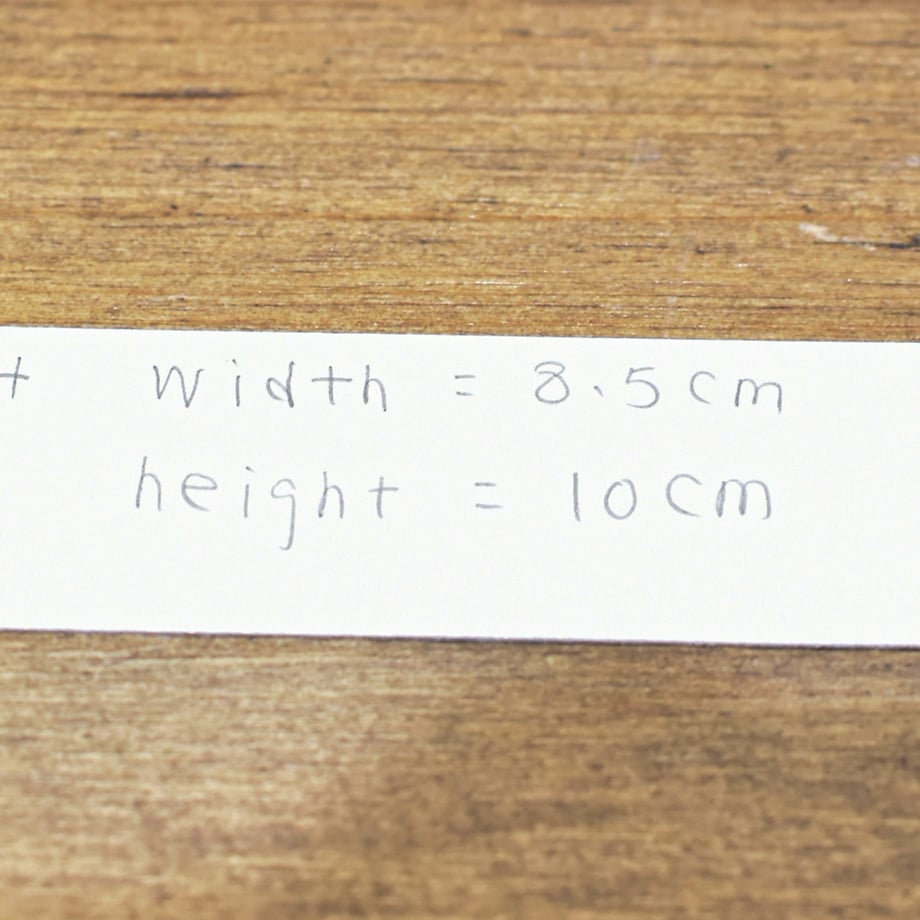 t width = 8.5cm
height = 10cm